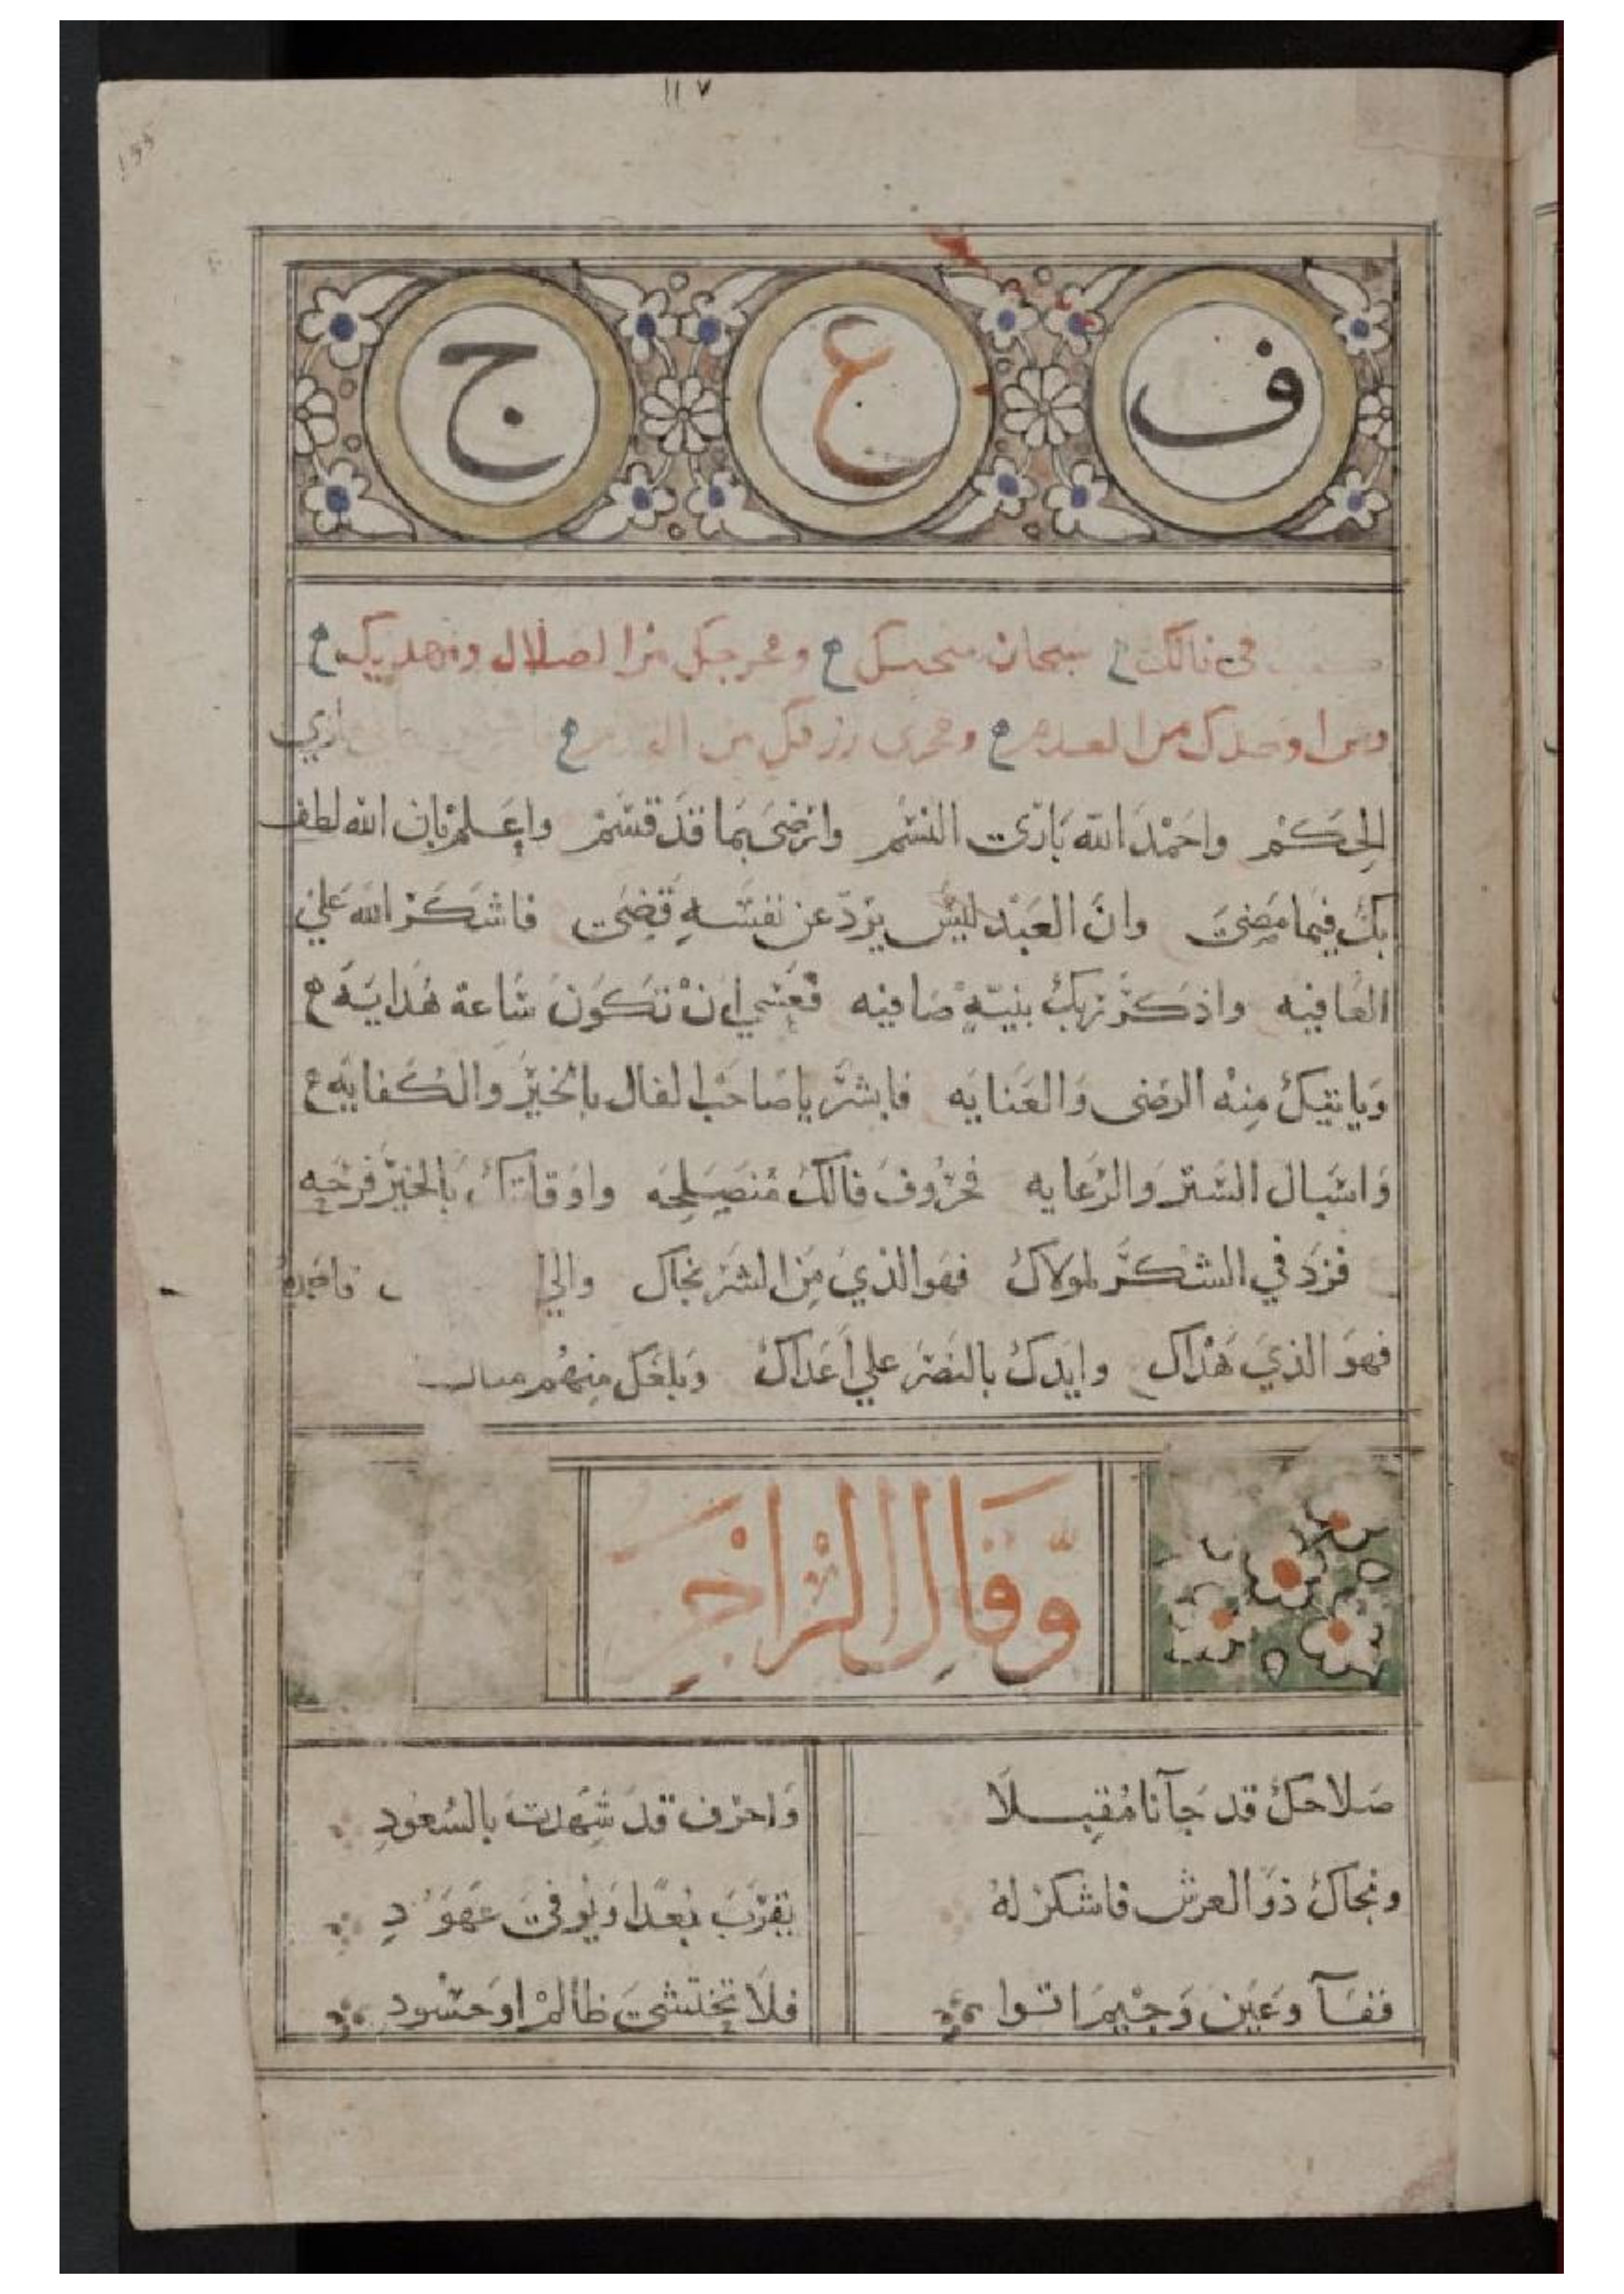 ١١٧
١٤٤
ف ع ج
في فالك سبحان منجيك ومخرجك من الضلال ومهديك
ومن اوجدك من العدم ومجري رزقك من
الحِكَمْ واحَمْدَ الله بَارئ النسَم وارْضَى بمَا قَدْ قسَمْ واعِلمْ بِان الله لطف
بكَ فيمَا مَضىَ وانَّ العَبْد ليسَ يرَدّ عن نفسَهِ قضىَ فاشكَرْ الله عَلي
العَافيه واذكَرَّ رَبكَ بنيّةٍ صَافيه فعَسَي انْ تكَونَ سَاعة هُدايَه
وَيَاتيكَ مِنْه الرضى وَالعَنايَه فابشرَّ يا صَاحَبْ الفال بالخيَرْ والكفايَه
وَاسبَال السَتر وَالرْعَايه فحَرُّوفَ فالكَ مُنصَلِحَه واوَقاتكَ بالخيَرْ فرْحَه
فزدَ في الشكرَّ لموَلاكَ فهَوا الذيَ مِنَ الشرَ نجاك والي
فهوَ الذيَ هَدَاك وايَدكَ بالنصَر علي اعَدَاكَ وَبلغَك منِهُم
وَّقَالِ الرْاجَز
صَلاحكَ قد جَآنا مُقبِلاَ وَاحرَف قدَ شَهِدتَ بالسُعَودِ
ونجاكَ ذوَ العرش فاشكرْ لهُ يقرَبَ بُعدًا وَيُوفىَ عَهوَدِ
ففآ وعَيَن وَجْيمَ اتوا فلاَ تخِتشىَ ظالمْ اوحَسْود